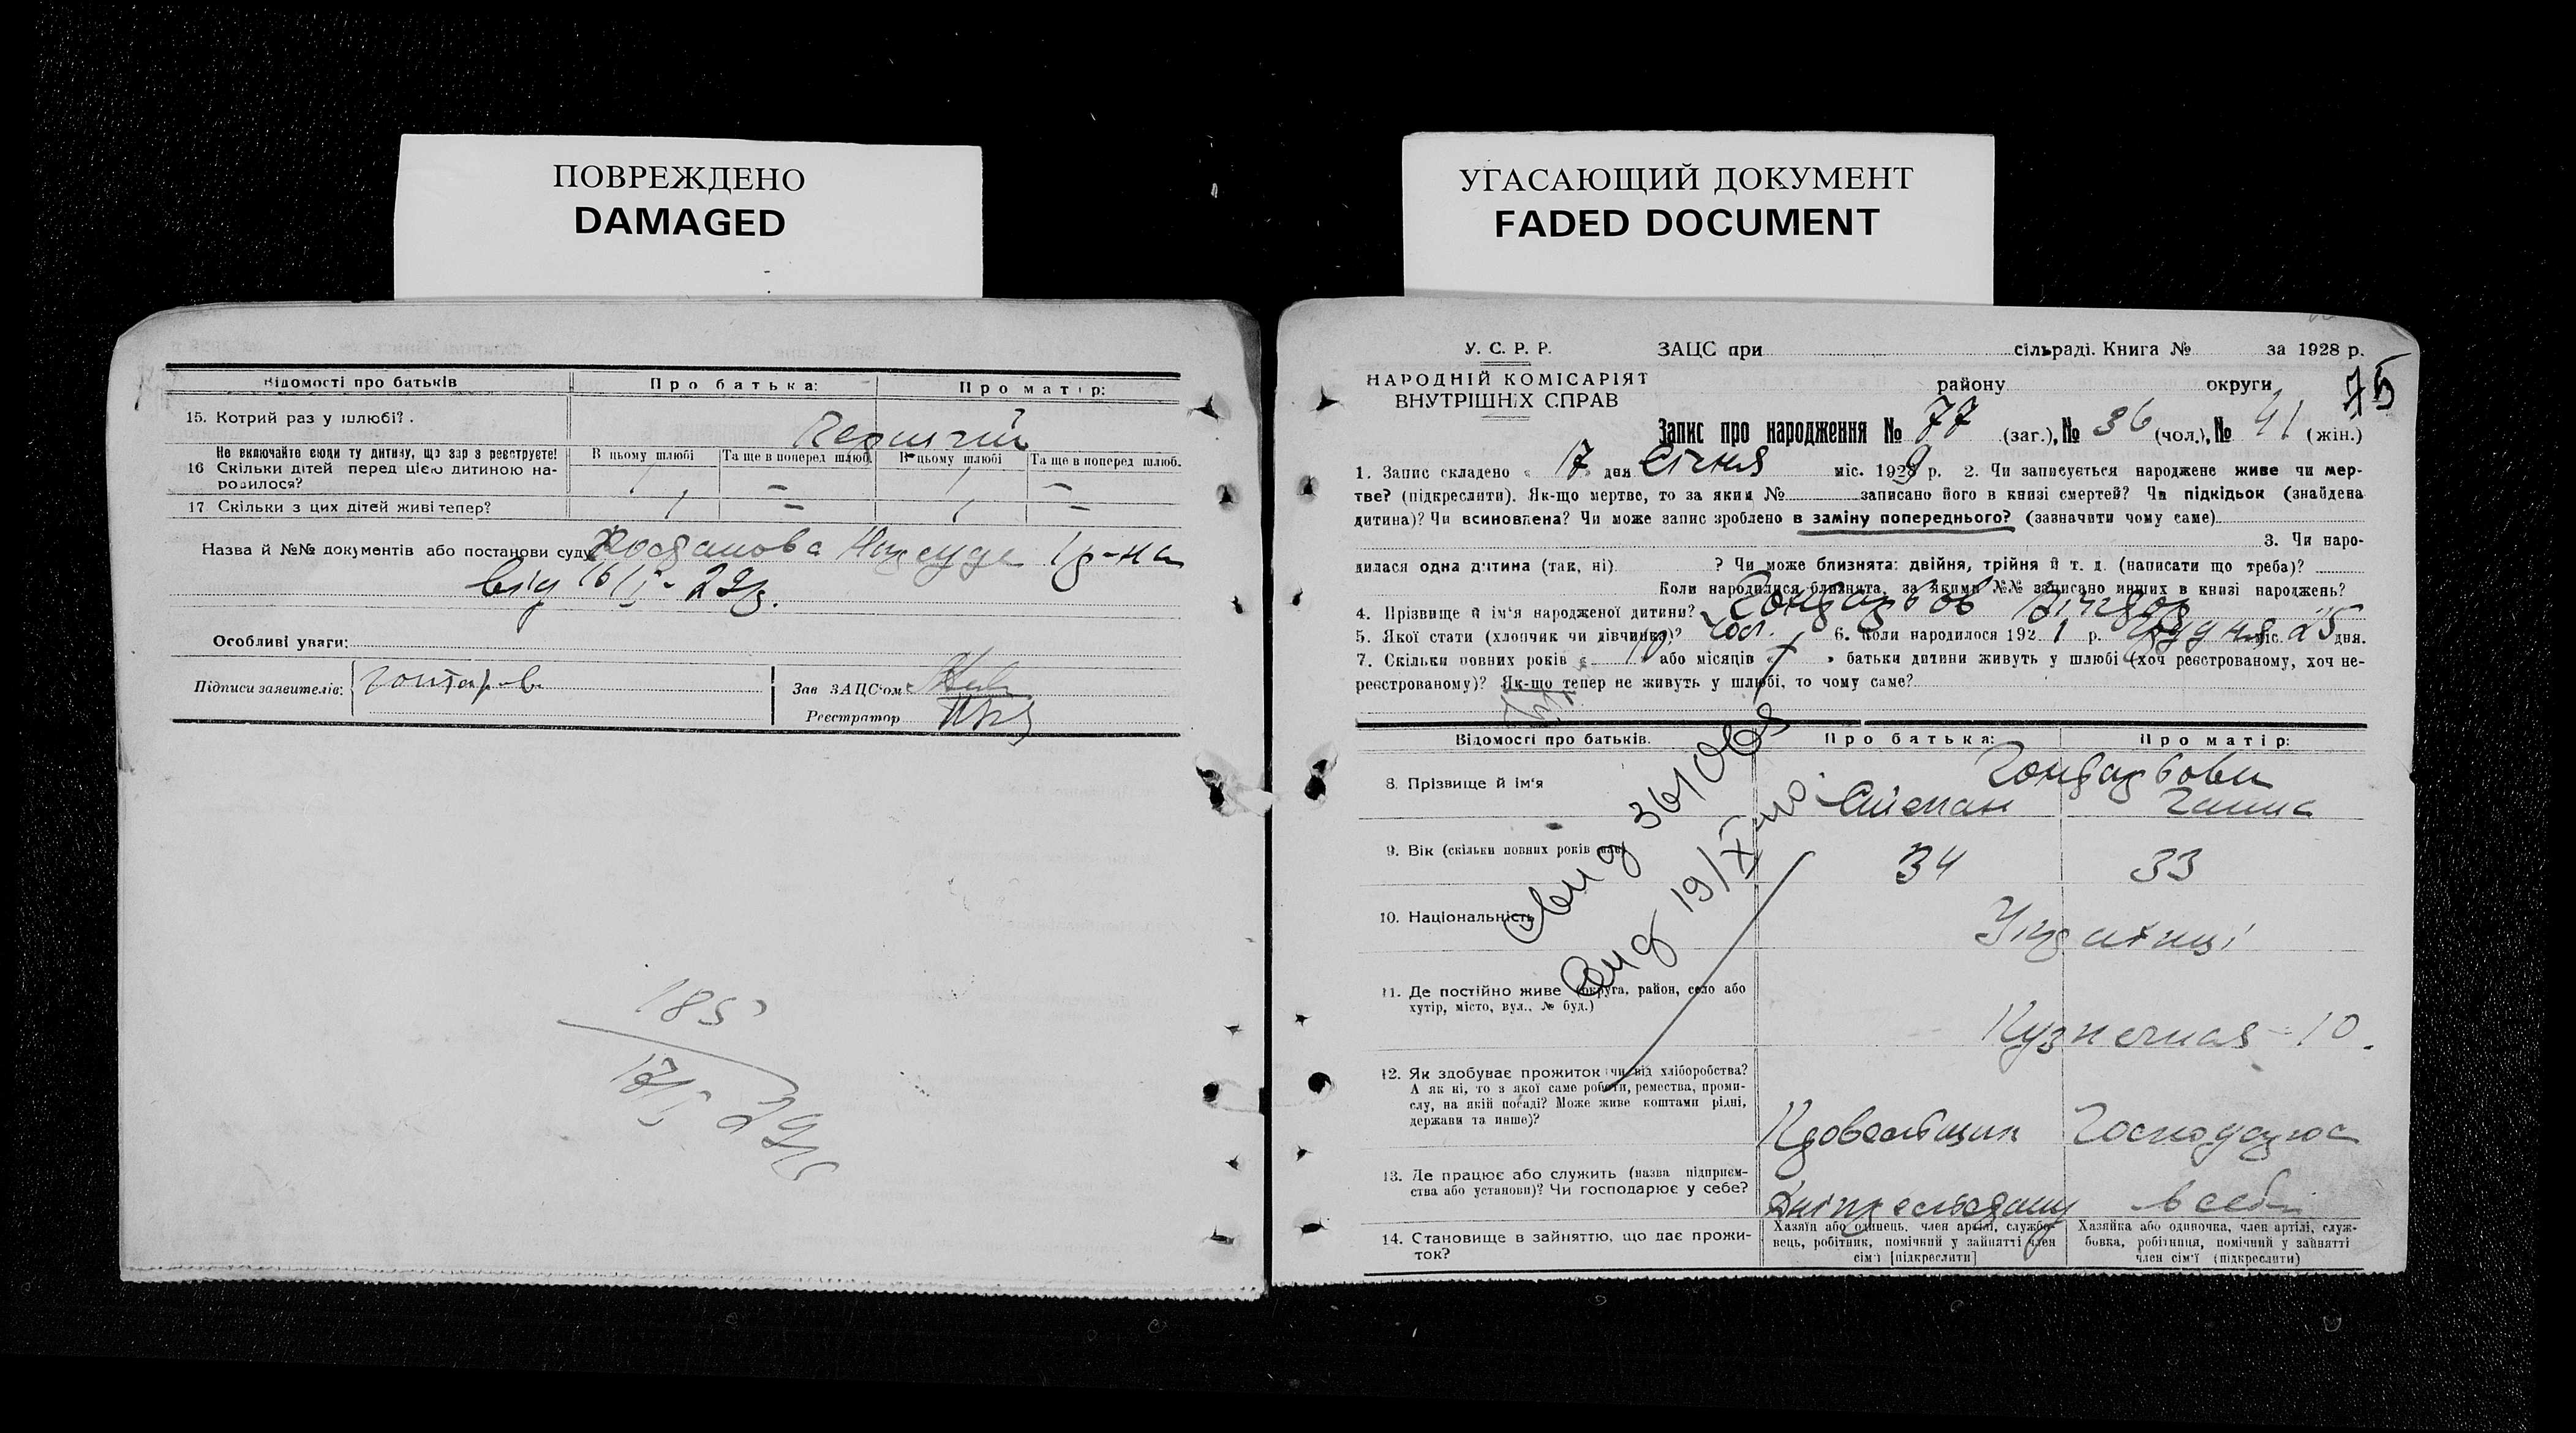 ПОВРЕЖДЕНО
DAMAGED
УГАСАЮЩИЙ ДОКУМЕНТ
FADED DOCUMENT
Відомості про батьків
Про батька:
Про матір:
15. Котрий раз у шлюбі?
Первичний
Не включайте сюди ту дитину, що зараз реєструєте!
В цьому шлюбі
Та ще в поперед. шлюб.
В цьому шлюбі
Та ще в поперед шлюб.
16 Скільки дітей перед цією дитиною на-
родилося?
1 — 1 —
17 Скільки з цих дітей живі тепер?
1 — 1 —
Назва й №№ документів або постанови суду
Постанова Нарсуда 1 р-на
від 16/I-29р.
Особливі уваги:
Підписи заявителів:
Зав ЗАЦС'ом
Реєстратор
185
17/I 29р
У. С. Р. Р.
НАРОДНІЙ КОМІСАРІЯТ
ВНУТРІШНІХ СПРАВ
ЗАЦС при сільраді. Книга № за 1928 р.
району округи
75
Запис про народження № 77 (заг.), № 36 (чол.), № 41 (жін.)
1. Запис складено „ 17 „ дня Січня міс. 1929 р. 2. Чи записується народжене живе чи мер-
тве? (підкреслити). Як-що мертве, то за яким № записано його в книзі смертей? Чи підкідьок (знайдена
дитина)? Чи всиновлена? Чи може запис зроблено в заміну попереднього? (зазначити чому саме)
3. Чи наро-
дилася одна дитина (так, ні) ? Чи може близнята: двійня, трійня й т. д. (написати що треба)?
Коли народилися близнята, за якими №№ записано инших в книзі народжень?
4. Прізвище й ім'я народженої дитини?
5. Якої стати (хлопчик чи дівчинка)? чол. 6. Коли народилося 192 1 р. Грудня міс. 25 дня.
7. Скільки повних років „ 10 „ або місяців „ „ батьки дитини живуть у шлюбі (хоч реєстрованому, хоч не-
реєстрованому)? Як-що тепер не живуть у шлюбі, то чому саме?
Відомості про батьків.
Про батька:
Про матір:
8. Прізвище й ім'я
Степан
Ганна
9. Вік (скільки повних років має)
34
33
10. Національність
Українці
11. Де постійно живе (округа, район, село або
хутір, місто, вул., № буд.)
Кузнечная - 10.
12. Як здобуває прожиток: чи від хліборобства?
А як ні, то з якої саме роботи, ремества, проми-
слу, на якій посаді? Може живе коштами рідні,
держави та инше)?
13. Де працює або служить (назва підприєм-
ства або установи)? Чи господарює у себе?
в себе
14. Становище в зайняттю, що дає прожи-
ток?
Хазяїн або одинець, член артілі, службо-
вець, робітник, помічний у зайнятті член
сім'ї [підкреслити]
Хазяйка або одиночка, член артілі, служ-
бовка, робітниця, помічний у зайнятті
член сім'ї (підкреслити)